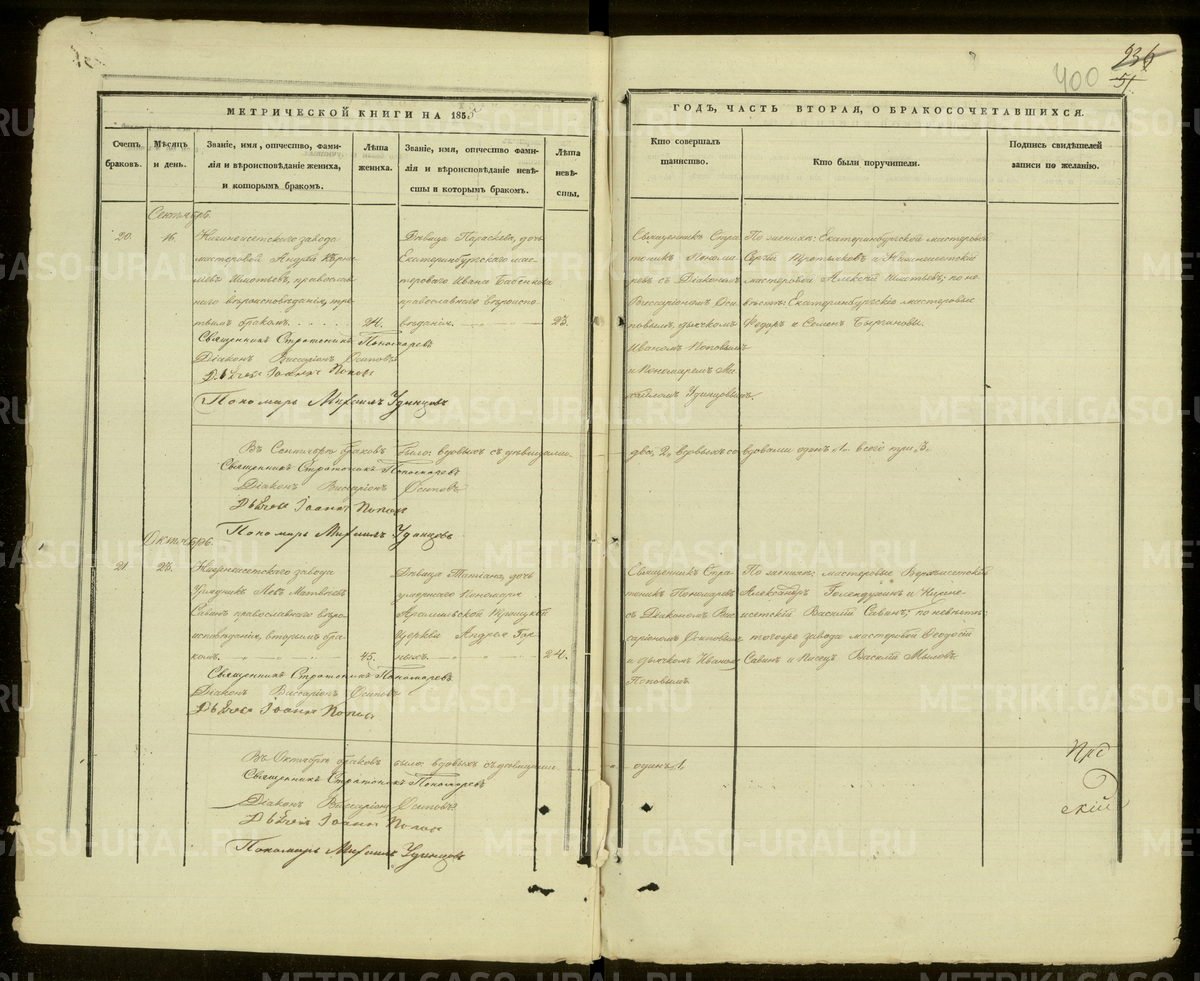 400
236
51
МЕТРИЧЕСКОЙ КНИГИ НА 185
ГОДЪ, ЧАСТЬ ВТОРАЯ, О БРАКОСОЧЕТАВШИХСЯ.
Счетъ браковъ.
Мѣсяцъ и день.
Званіе, имя, отчество, фами-
лія и вѣроисповѣданіе жениха,
и которымъ бракомъ.
Лѣта жениха.
Званіе, имя, отчество фами-
лія и вѣроисповѣданіе невѣ-
сты и которымъ бракомъ.
Лѣта невѣ-
сты.
Кто совершалъ
таинство.
Кто были поручители.
Подпись свидѣтелей
записи по желанію.
Сентябрь.
20.
16.
Нижнеисетскаго завода
мастеровой Андрей
православ-
наго вѣроисповѣданія, тре-
тьимъ бракомъ.
24.
Дѣвица Параскева, дочь
Екатеринбургскаго мас-
тероваго Ивана
православнаго вѣроиспо-
вѣданія.
23.
Священникъ Стра-
тоникъ Понома-
ревъ съ Діакономъ
Виссаріономъ Оси-
повымъ, дьячкомъ
Иваномъ Поповымъ
и Пономаремъ Ми-
хаиломъ Удинцовымъ.
По женихѣ: Екатеринбургской мастеровой
Сергій и Нижнеисетскій
мастеровой Алексѣй по не-
вѣстѣ: Екатеринбургскіе мастеровые
Федоръ и Семенъ
Священникъ Стратоникъ Пономаревъ
Діаконъ Виссаріонъ Осиповъ
Дьячекъ Іоаннъ Поповъ
Пономарь Михаилъ Удинцовъ
Въ Сентябрѣ браковъ было: вдовыхъ съ дѣвицами
два, 2, вдовыхъ со вдовами одинъ 1. всего три, 3.
Священникъ Стратоникъ Пономаревъ
Діаконъ Виссаріонъ Осиповъ
Дьячекъ Іоаннъ Поповъ
Пономарь Михаилъ Удинцовъ
Октябрь.
21.
23.
Нижнеисетскаго завода
Урядникъ Левъ Матвѣевъ
Савинъ православнаго вѣро-
исповѣданія, вторымъ бра-
комъ.
45.
Дѣвица Татіана, дочь
умершаго Пономаря
Арамильской Троицкой
церкви Андрея
24.
Священникъ Стра-
тоникъ Пономаревъ
съ Діакономъ Вис-
саріономъ Осиповымъ
и дьячкомъ Иваномъ
Поповымъ
По женихѣ: мастеровые Верхисетскій
Александръ Голендухинъ и Нижне-
исетскій Василій Савинъ; по невѣстѣ:
тогоже завода мастеровой Ѳеодосій
Савинъ и писецъ Василій
Священникъ Стратоникъ Пономаревъ
Діаконъ Виссаріонъ Осиповъ
Дьячекъ Іоаннъ Поповъ
Въ Октябрѣ браковъ было: вдовыхъ съ дѣвицами
одинъ, 1.
Священникъ Стратоникъ Пономаревъ
Діаконъ Виссаріонъ Осиповъ
Дьячекъ Іоаннъ Поповъ
Пономарь Михаилъ Удинцовъ
скій
METRIKI.GASO-URAL.RU